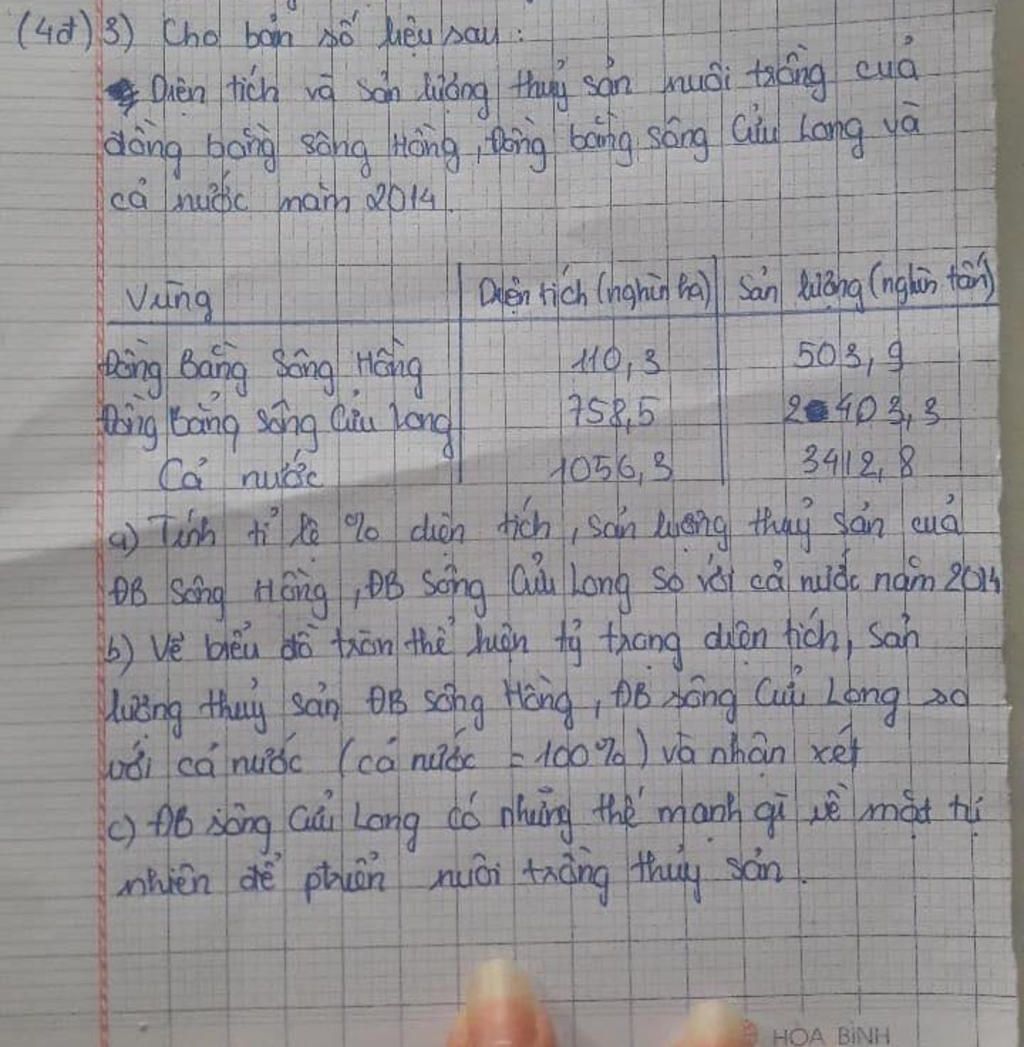 (4đ) 3) Cho bản số liệu sau:
Diện tích và sản lượng thuỷ sản nuôi trồng cuả
đồng bằng sông Hồng, Đồng bằng sông Cửu Long và
cả nước năm 2014.
Vùng Diện tích (nghìn ha) Sản lượng (nghìn tấn)
Đồng Bằng Sông Hồng 110,3 503,9
Đồng bằng sông Cửu Long 758,5 2403,3
Cả nước 1056,3 3412,8
a) Tính tỉ lệ % diện tích, sản lượng thuỷ sản cuả
ĐB Sông Hồng, ĐB Sông Cửu Long so với cả nước năm 2014
b) Vẽ biểu đồ tròn thể hiện tỷ trọng diện tích, sản
lượng thuỷ sản ĐB sông Hồng, ĐB sông Cửu Long so
với cả nước (cả nước = 100%) và nhận xét
c) ĐB sông Cửu Long có những thế mạnh gì về mặt tự
nhiên để phiển nuôi trồng thuỷ sản.
HÒA BÌNH